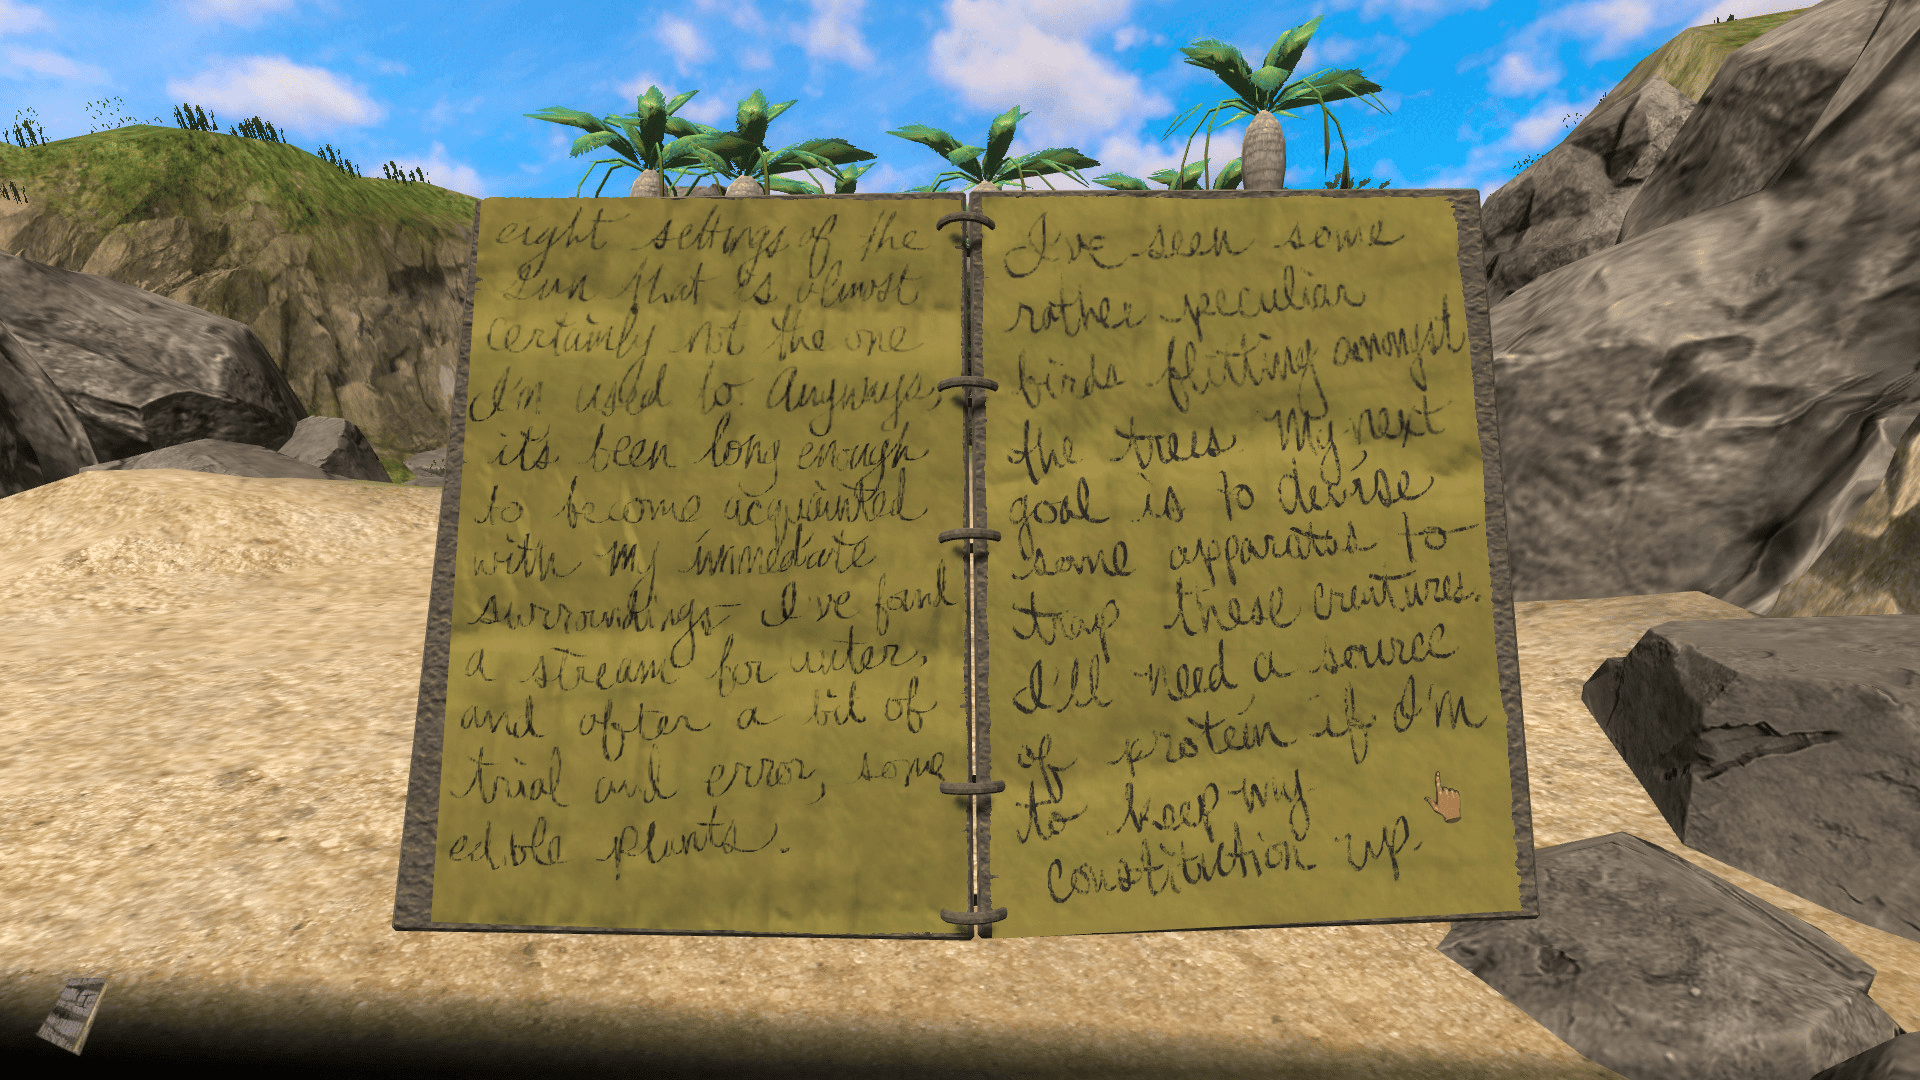 eight settings of the
Sun that is almost
certainly not the one
I'm used to. Anyways,
it's been long enough
to become acquainted
with my immediate
surroundings- I've found
a stream for water,
and after a bit of
trial and error, some
edible plants.
I've seen some
rather peculiar
birds flitting amongst
the trees. My next
goal is to devise
some apparatus to
trap these creatures.
I'll need a source
of protein if I'm
to keep my
constitution up.